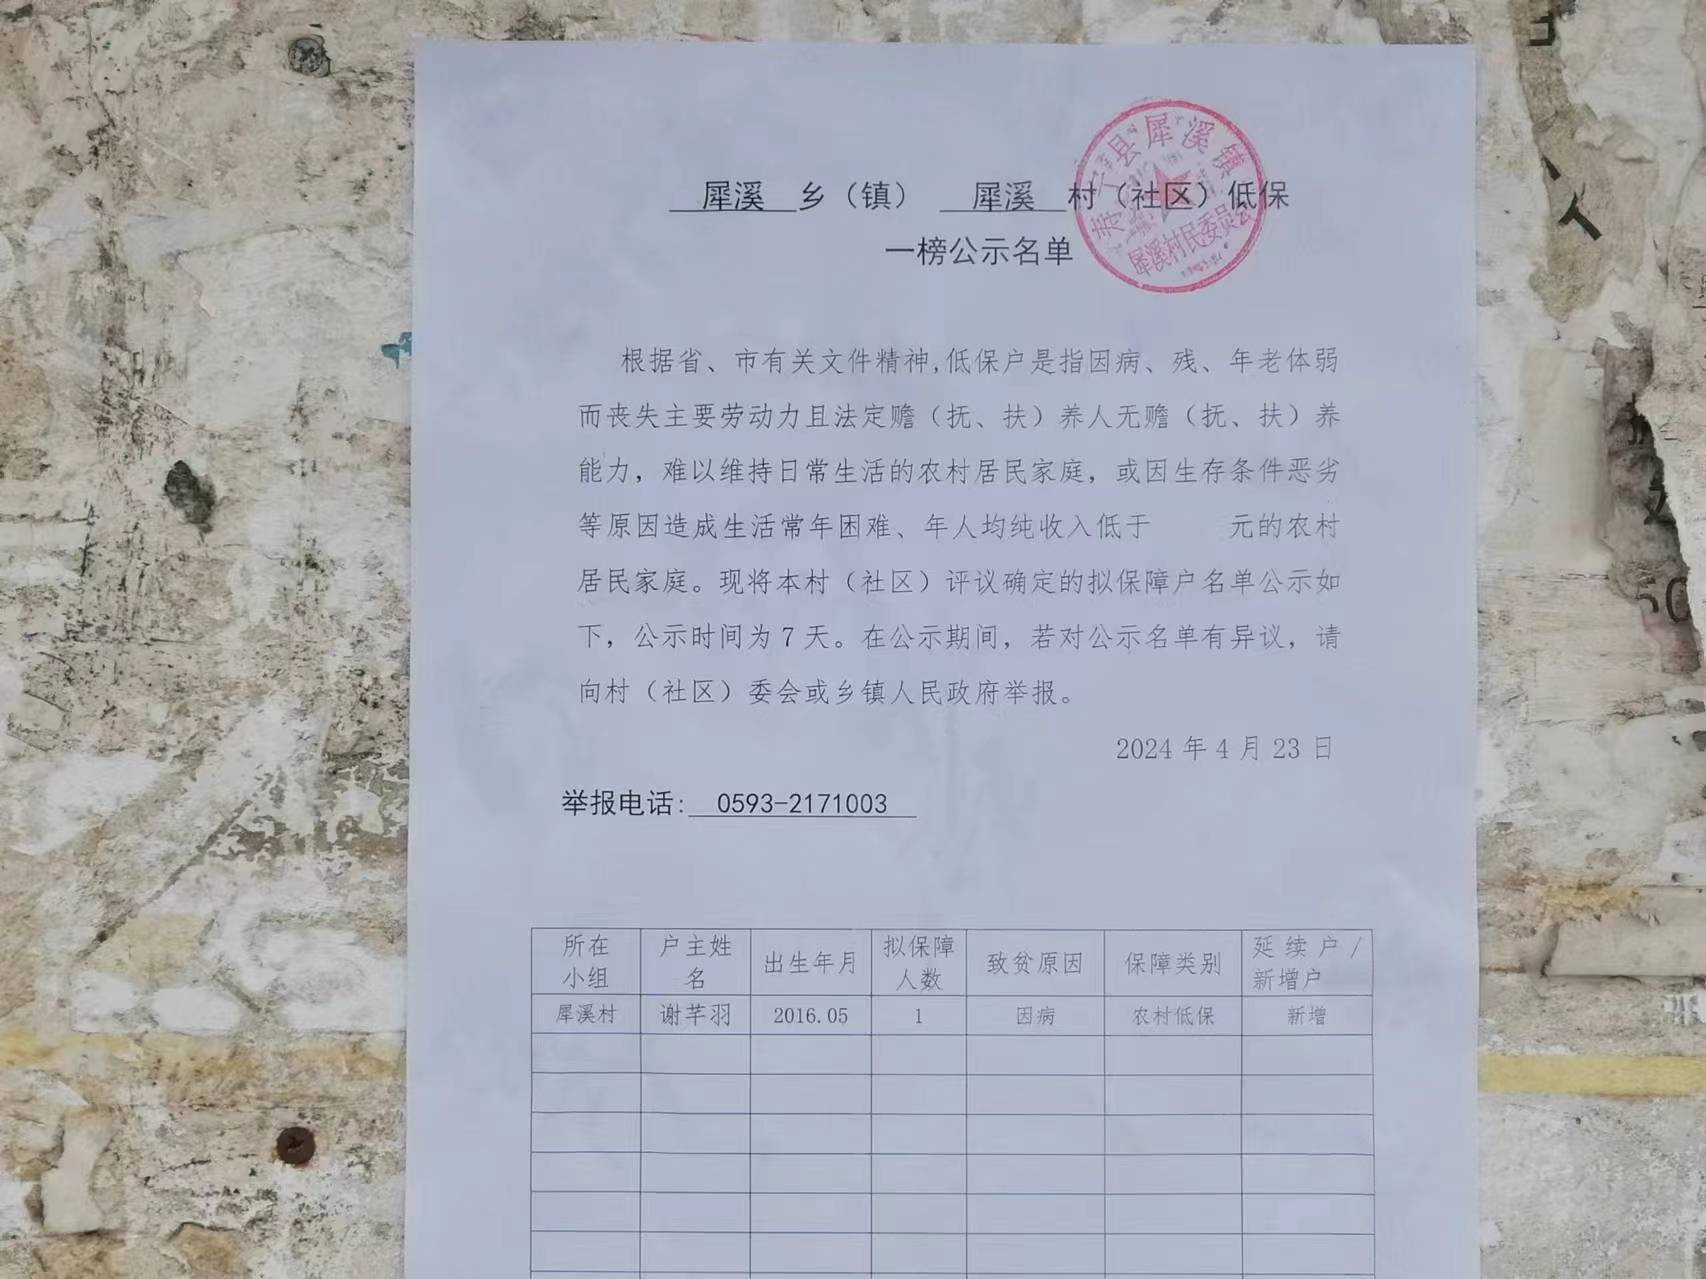 犀溪 乡（镇） 犀溪 村（社区）低保
一榜公示名单
寿宁县犀溪镇
犀溪村民委员会
根据省、市有关文件精神,低保户是指因病、残、年老体弱
而丧失主要劳动力且法定赡（抚、扶）养人无赡（抚、扶）养
能力，难以维持日常生活的农村居民家庭，或因生存条件恶劣
等原因造成生活常年困难、年人均纯收入低于 元的农村
居民家庭。现将本村（社区）评议确定的拟保障户名单公示如
下，公示时间为 7 天。在公示期间，若对公示名单有异议，请
向村（社区）委会或乡镇人民政府举报。
2024 年 4 月 23 日
举报电话: 0593-2171003
所在小组 户主姓名 出生年月 拟保障人数 致贫原因 保障类别 延续户/新增户
犀溪村 谢芊羽 2016.05 1 因病 农村低保 新增